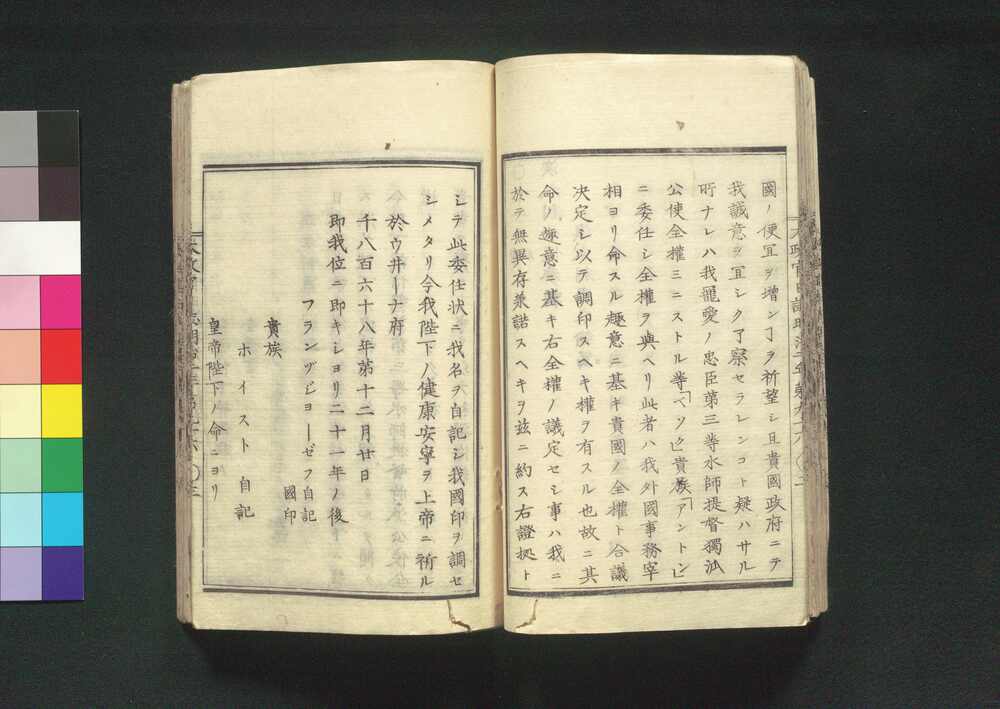 國ノ便宜ヲ増ンヿヲ祈望シ且貴國政府ニテ
我誠意ヲ宜シク了察セラレンコト疑ハサル
所ナレハ我寵愛ノ忠臣第三等水師提督獨派
公使全權ミニストル等「ペソ」ㇳ貴族「アントン」
ニ委任シ全權ヲ與ヘリ此者ハ我外國事務宰
相ヨリ命スル趣意ニ基キ貴國ノ全權ト合議
決定シ以テ調印スヘキ權ヲ有スル也故ニ其
命ノ趣意ニ基キ右全權ノ議定セシ事ハ我ニ
於テ無異存兼諾スヘキヲ玆ニ約ス右證拠ト
シテ此委任状ニ我名ヲ自記シ我國印ヲ調セ
シメタリ今我陛下ノ健康安寧ヲ上帝ニ祈ル
於ウ井ーナ府
千八百六十八年第十二月廿日
即我位ニ即キシヨリ二十一年ノ後
フランヅビヨーゼフ自記
國印
貴族
ホイスト自記
皇帝陛下ノ命ニヨリ